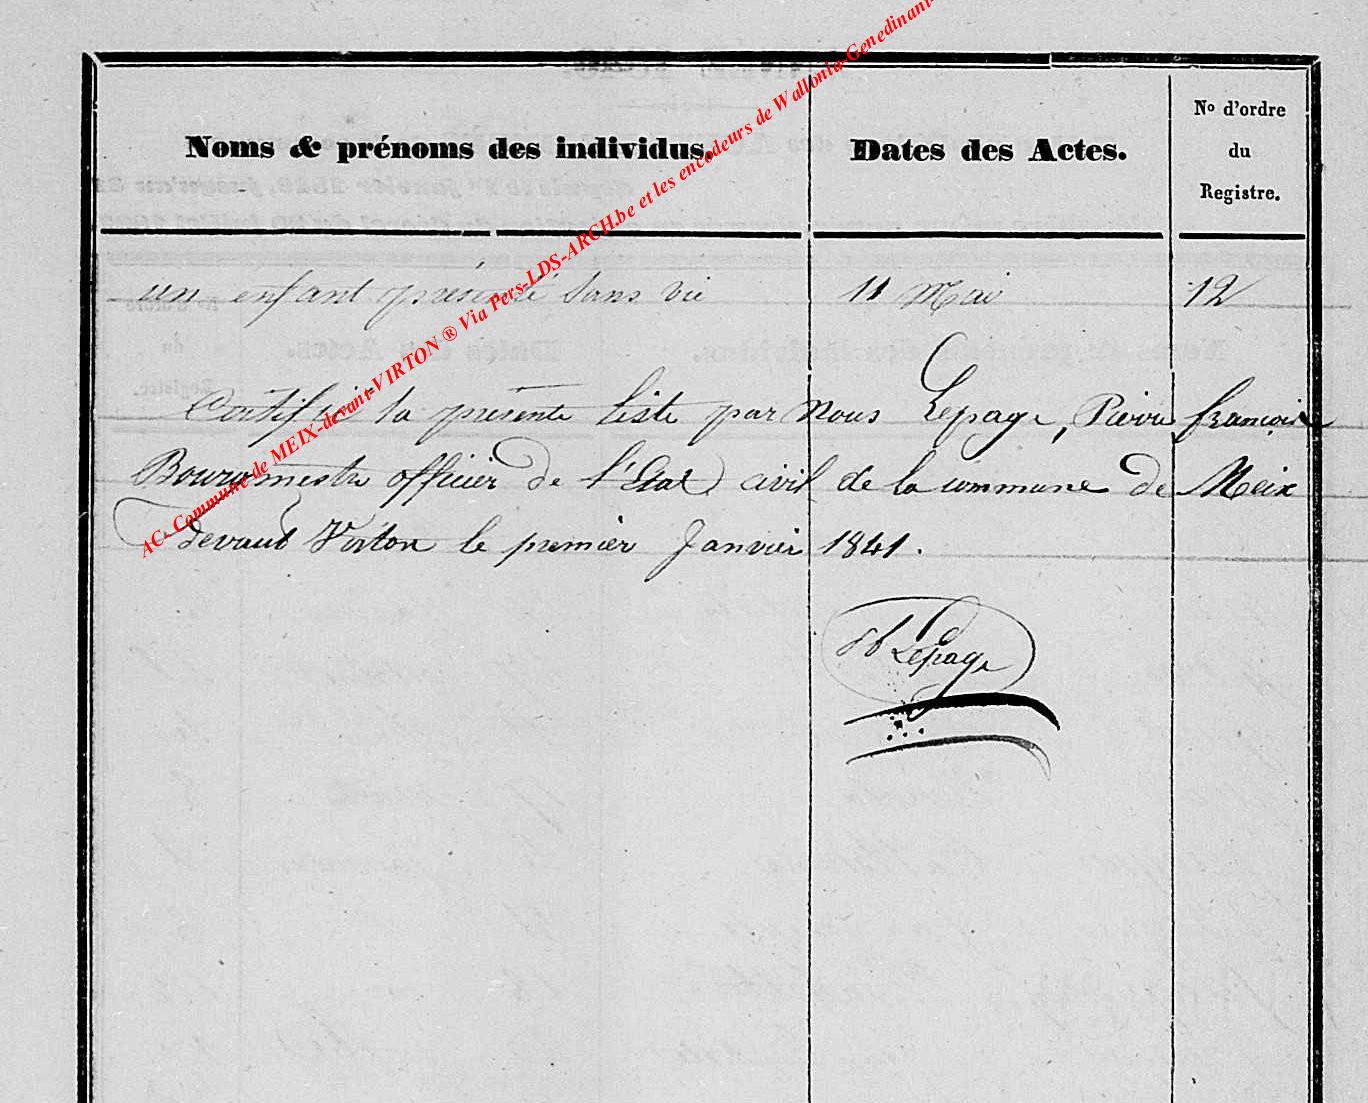 Noms & prénoms des individus.
Dates des Actes.
No d'ordre
du
Registre.
un enfant présenté sans vie 11 Mai 12
Certifié la présente liste par Nous Lepage, Pierre françois
Bourgmestre officier de l'Etat civil de la commune de Meix
devant Virton le premier Janvier 1841.
Lepage
AC- Commune de MEIX-devant-VIRTON ® Via Pers-LDS-ARCH.be et les encodeurs de Wallonia-Genedinant-